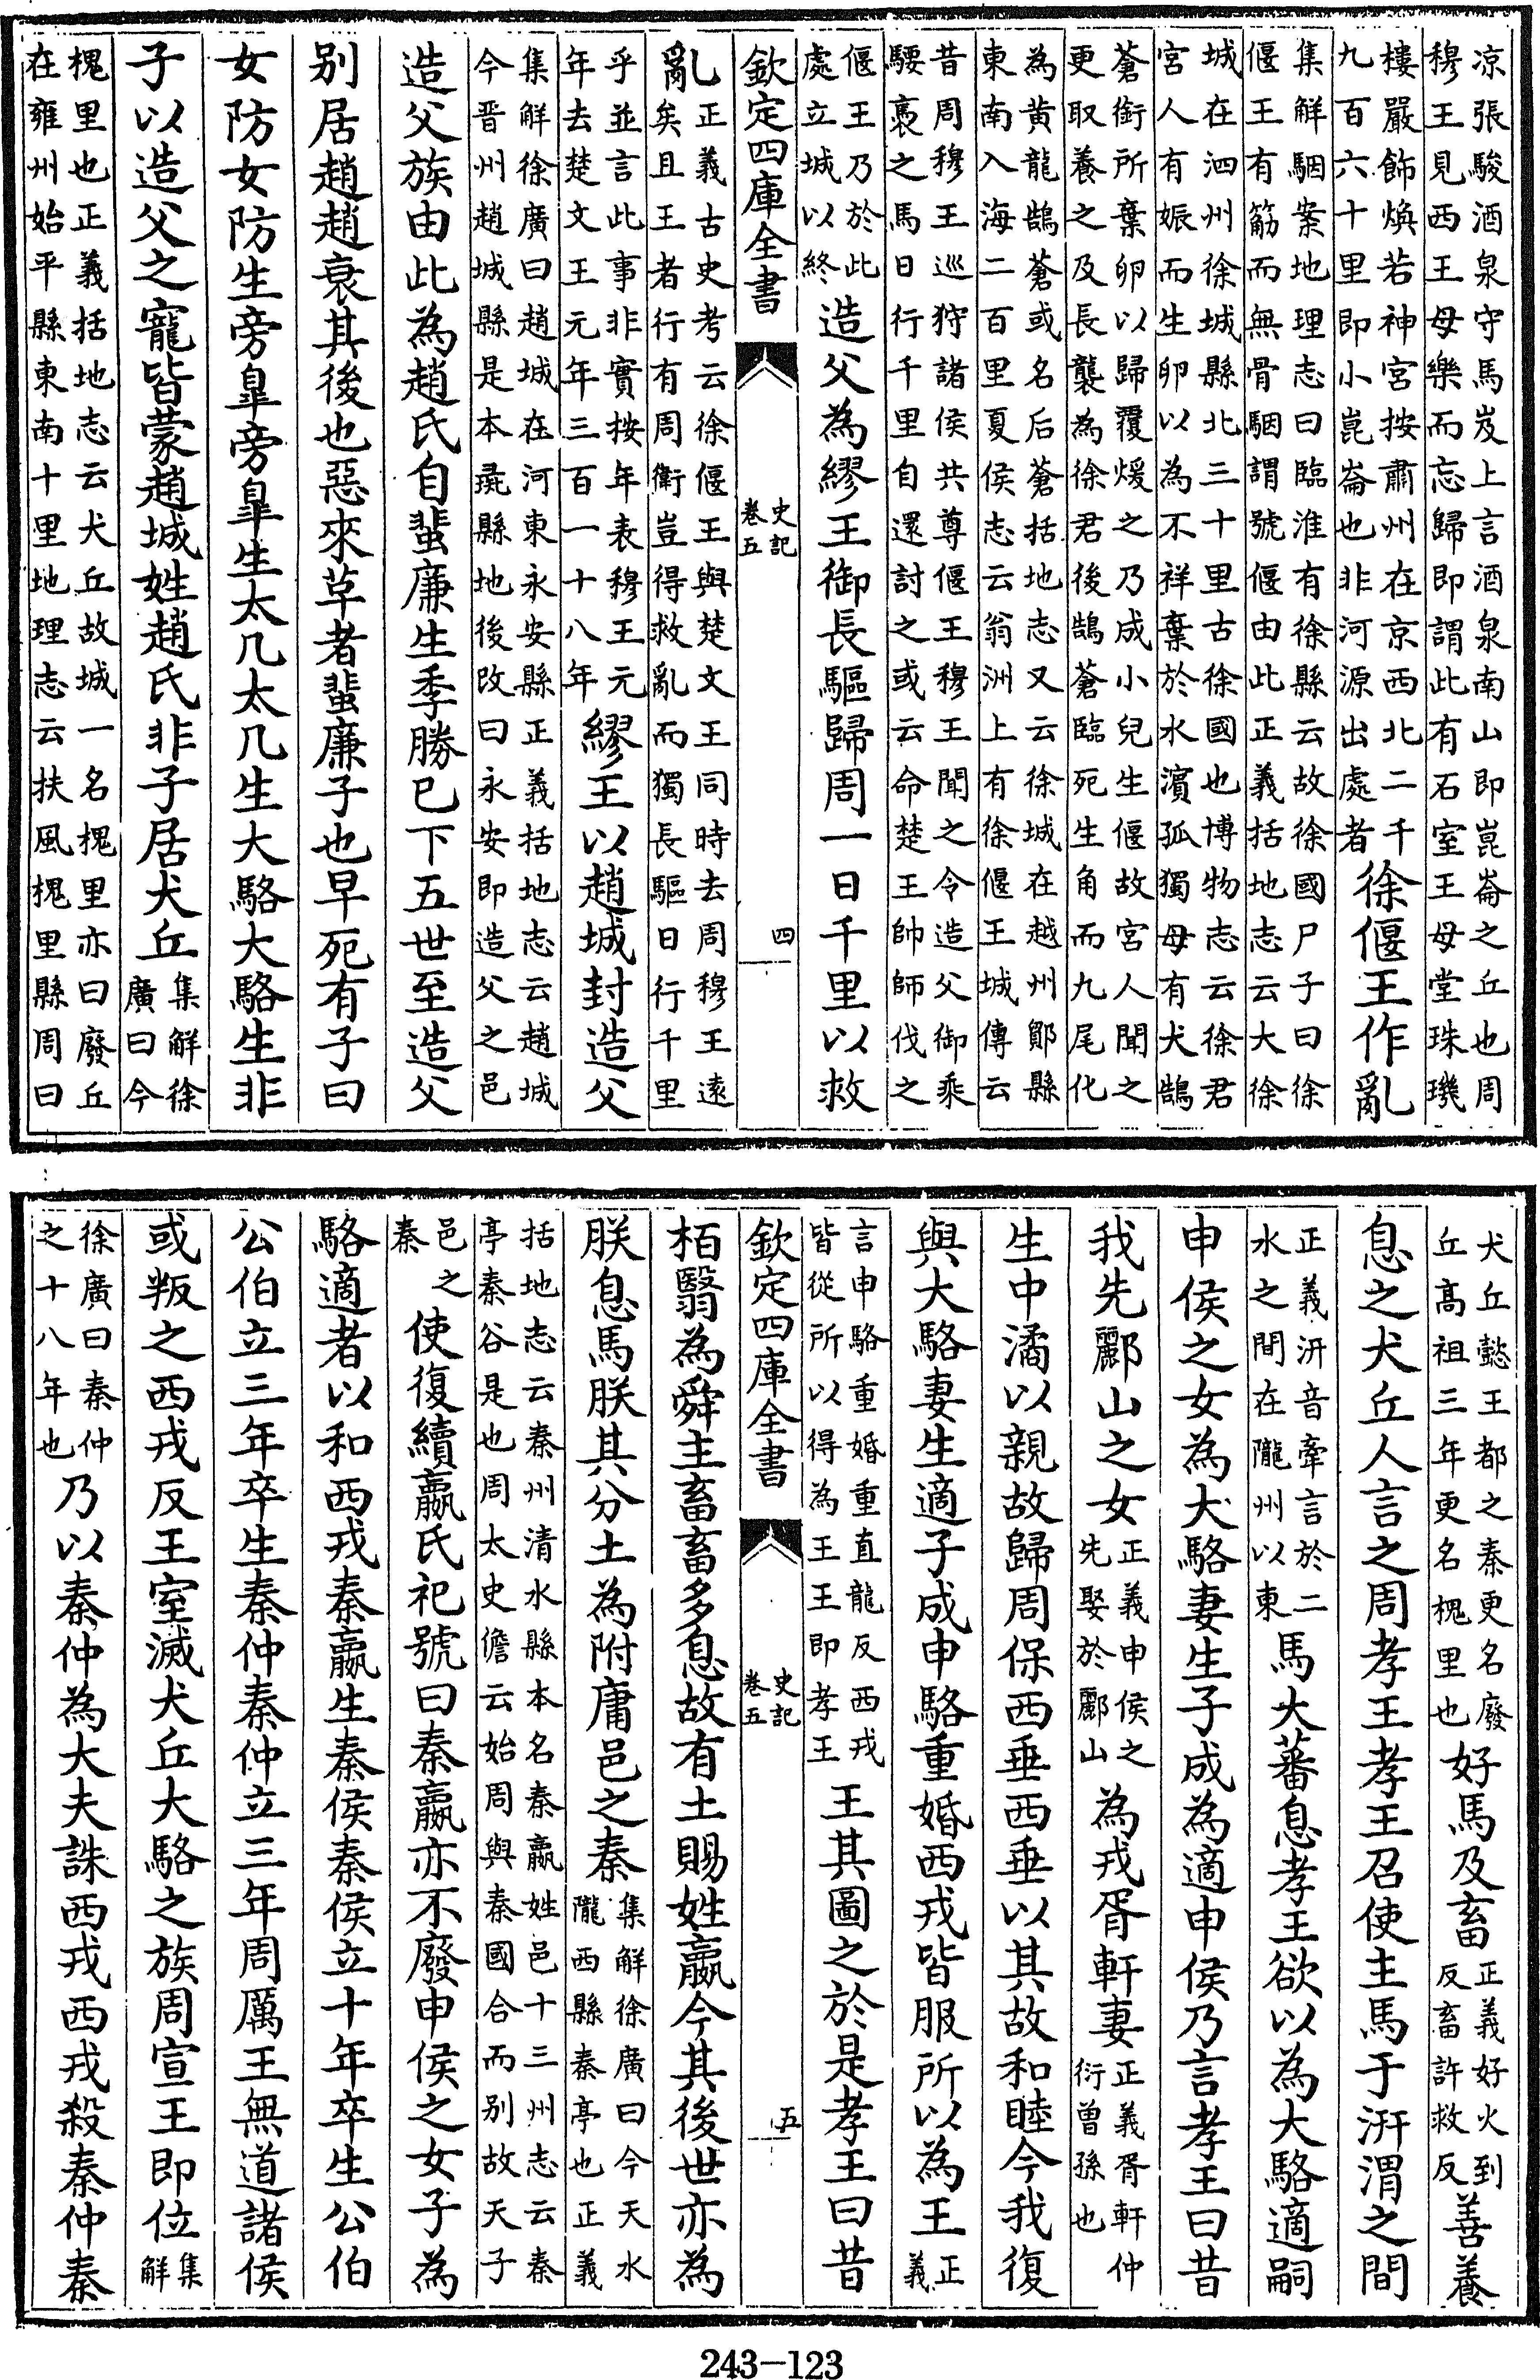 凉張駿酒泉守馬岌上言酒泉南山即崑崙之丘也周
穆王見西王母樂而忘歸即謂此有石室王母堂珠璣
樓嚴飾煥若神宮按肅州在京西北二千
九百六十里即小崑崙也非河源出處者徐偃王作亂
集解駰案地理志曰臨淮有徐縣云故徐國尸子曰徐
偃王有筋而無骨駰謂號偃由此正義括地志云大徐
城在泗州徐城縣北三十里古徐國也博物志云徐君
宮人有娠而生卵以為不祥棄於水濱孤獨母有犬鵠
蒼銜所棄卵以歸覆煖之乃成小兒生偃故宮人聞之
更取養之及長襲為徐君後鵠蒼臨死生角而九尾化
為黄龍鵠蒼或名后蒼括地志又云徐城在越州鄮縣
東南入海二百里夏侯志云翁洲上有徐偃王城傳云
昔周穆王巡狩諸侯共尊偃王穆王聞之令造父御乘
騕褭之馬日行千里自還討之或云命楚王帥師伐之
偃王乃於此
處立城以終造父為繆王御長驅歸周一日千里以救
欽定四庫全書 史記卷五 四
亂正義古史考云徐偃王與楚文王同時去周穆王遠
矣且王者行有周衛豈得救亂而獨長驅日行千里
乎並言此事非實按年表穆王元
年去楚文王元年三百一十八年繆王以趙城封造父
集解徐廣曰趙城在河東永安縣正義括地志云趙城
今晋州趙城縣是本彘縣地後改曰永安即造父之邑
造父族由此為趙氏自蜚廉生季勝已下五世至造父
别居趙趙衰其後也惡來革者蜚廉子也早死有子曰
女防女防生旁臯旁臯生太几太几生大駱大駱生非
子以造父之寵皆蒙趙城姓趙氏非子居犬丘集解徐
廣曰今
槐里也正義括地志云犬丘故城一名槐里亦曰廢丘
在雍州始平縣東南十里地理志云扶風槐里縣周曰
犬丘懿王都之秦更名廢
丘髙祖三年更名槐里也好馬及畜正義好火到
反畜許救反善養
息之犬丘人言之周孝王孝王召使主馬于汧渭之間
正義汧音牽言於二
水之間在隴州以東馬大蕃息孝王欲以為大駱適嗣
申侯之女為大駱妻生子成為適申侯乃言孝王曰昔
我先酈山之女正義申侯之
先娶於酈山為戎胥軒妻正義胥軒仲
衍曾孫也
生中潏以親故歸周保西垂西垂以其故和睦今我復
與大駱妻生適子成申駱重婚西戎皆服所以為王正
義
言申駱重婚重直龍反西戎
皆從所以得為王王即孝王王其圖之於是孝王曰昔
欽定四庫全書 史記卷五 五
栢翳為舜主畜畜多息故有土賜姓嬴今其後世亦為
朕息馬朕其分土為附庸邑之秦集解徐廣曰今天水
隴西縣秦亭也正義
括地志云秦州清水縣本名秦嬴姓邑十三州志云秦
亭秦谷是也周太史儋云始周與秦國合而别故天子
邑之
秦使復續嬴氏祀號曰秦嬴亦不廢申侯之女子為
駱適者以和西戎秦嬴生秦侯秦侯立十年卒生公伯
公伯立三年卒生秦仲秦仲立三年周厲王無道諸侯
或叛之西戎反王室滅犬丘大駱之族周宣王即位集
解
徐廣曰秦仲
之十八年也乃以秦仲為大夫誅西戎西戎殺秦仲秦
243-123